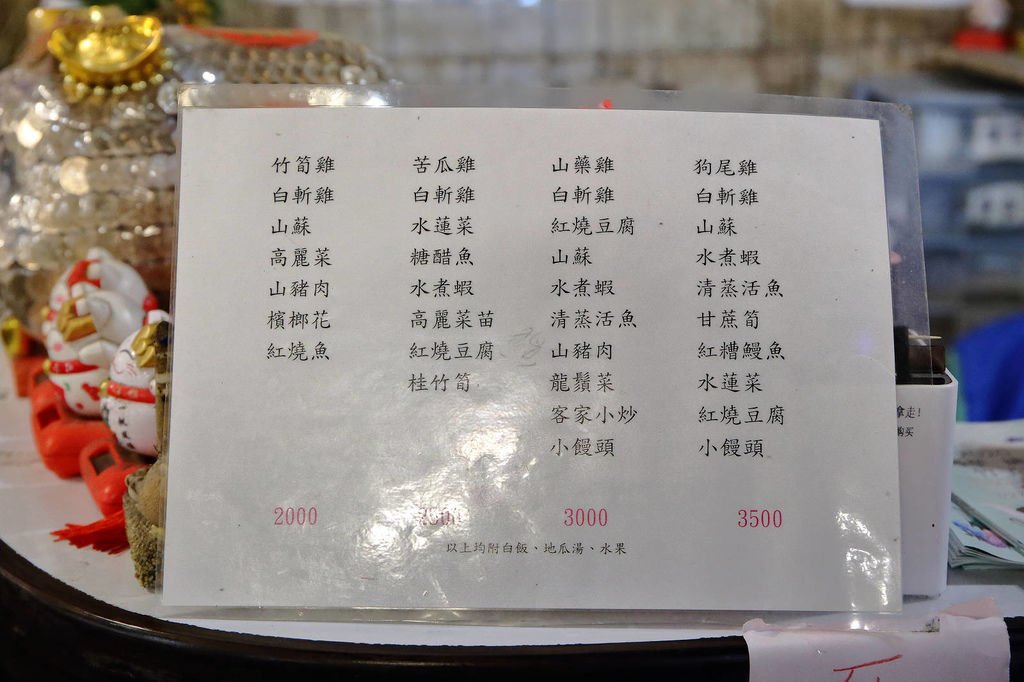 竹筍雞 苦瓜雞 山藥雞 狗尾雞
白斬雞 白斬雞 白斬雞 白斬雞
山蘇 水蓮菜 紅燒豆腐 山蘇
高麗菜 糖醋魚 山蘇 水煮蝦
山豬肉 水煮蝦 水煮蝦 清蒸活魚
檳榔花 高麗菜苗 清蒸活魚 甘蔗筍
紅燒魚 紅燒豆腐 山豬肉 紅糟鰻魚
桂竹筍 龍鬚菜 水蓮菜
客家小炒 紅燒豆腐
小饅頭 小饅頭
2000 2500 3000 3500
以上均附白飯、地瓜湯、水果
拿走!
购买